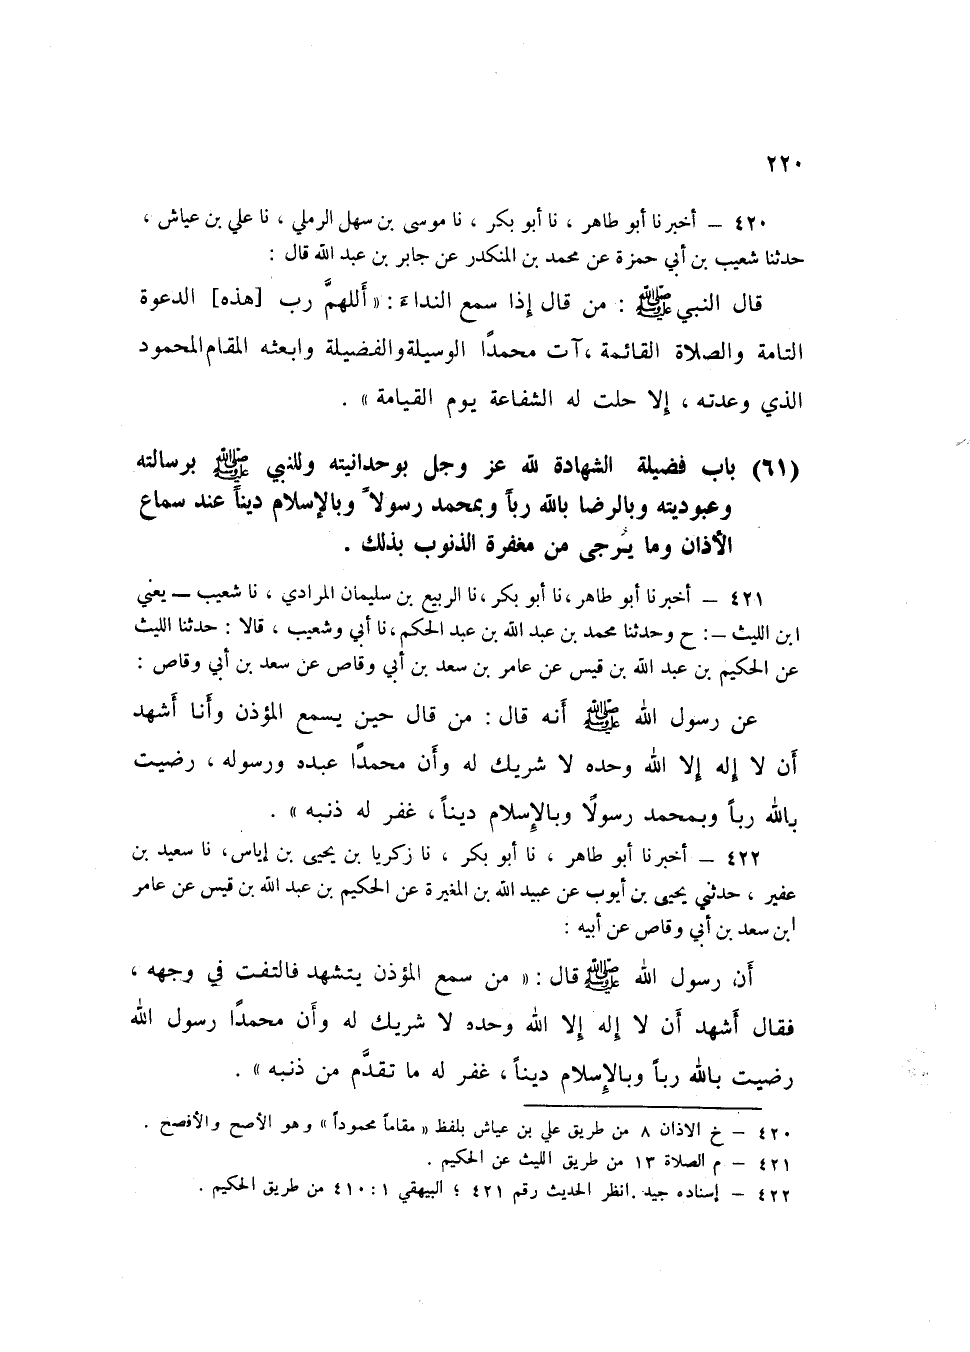 ٢٢٠
٤٢٠ – أخبرنا أبو طاهر ، نا أبو بكر ، نا موسى بن سهل الرملي ، نا علي بن عياش ،
حدثنا شعيب بن أبي حمزة عن محمد بن المنكدر عن جابر بن عبد الله قال :
قال النبي ﷺ : من قال إذا سمع النداء : « أللهمَّ رب [هذه] الدعوة
التامة والصلاة القائمة ، آت محمدًا الوسيلة والفضيلة وابعثه المقام المحمود
الذي وعدته ، إلا حلت له الشفاعة يوم القيامة » .
(٦١) باب فضيلة الشهادة لله عز وجل بوحدانيته وللنبي ﷺ برسالته
وعبوديته وبالرضا بالله رباً وبمحمد رسولاً وبالإسلام ديناً عند سماع
الأذان وما يُرجى من مغفرة الذنوب بذلك .
٤٢١ – أخبرنا أبو طاهر ، نا أبو بكر ، نا الربيع بن سليمان المرادي ، نا شعيب – يعني
ابن الليث – : ح وحدثنا محمد بن عبد الله بن عبد الحكم ، نا أبي وشعيب ، قالا : حدثنا الليث
عن الحكيم بن عبد الله بن قيس عن عامر بن سعد بن أبي وقاص عن سعد بن أبي وقاص :
عن رسول الله ﷺ أنه قال : من قال حين يسمع المؤذن وأنا أشهد
أن لا إله إلا الله وحده لا شريك له وأن محمدًا عبده ورسوله ، رضيت
بالله رباً وبمحمد رسولًا وبالإسلام ديناً ، غفر له ذنبه » .
٤٢٢ – أخبرنا أبو طاهر ، نا أبو بكر ، نا زكريا بن يحيى بن إياس ، نا سعيد بن
عفير ، حدثني يحيى بن أيوب عن عبيد الله بن المغيرة عن الحكيم بن عبد الله بن قيس عن عامر
ابن سعد بن أبي وقاص عن أبيه :
أن رسول الله ﷺ قال : « من سمع المؤذن يتشهد فالتفت في وجهه ،
فقال أشهد أن لا إله إلا الله وحده لا شريك له وأن محمدًا رسول الله
رضيت بالله رباً وبالإسلام ديناً ، غفر له ما تقدَّم من ذنبه » .
٤٢٠ – خ الاذان ٨ من طريق علي بن عياش بلفظ « مقاماً محموداً » وهو الأصح والأفصح .
٤٢١ – م الصلاة ١٣ من طريق الليث عن الحكيم .
٤٢٢ – إسناده جيد . انظر الحديث رقم ٤٢١ ؛ البيهقي ١ : ٤١٠ من طريق الحكيم .